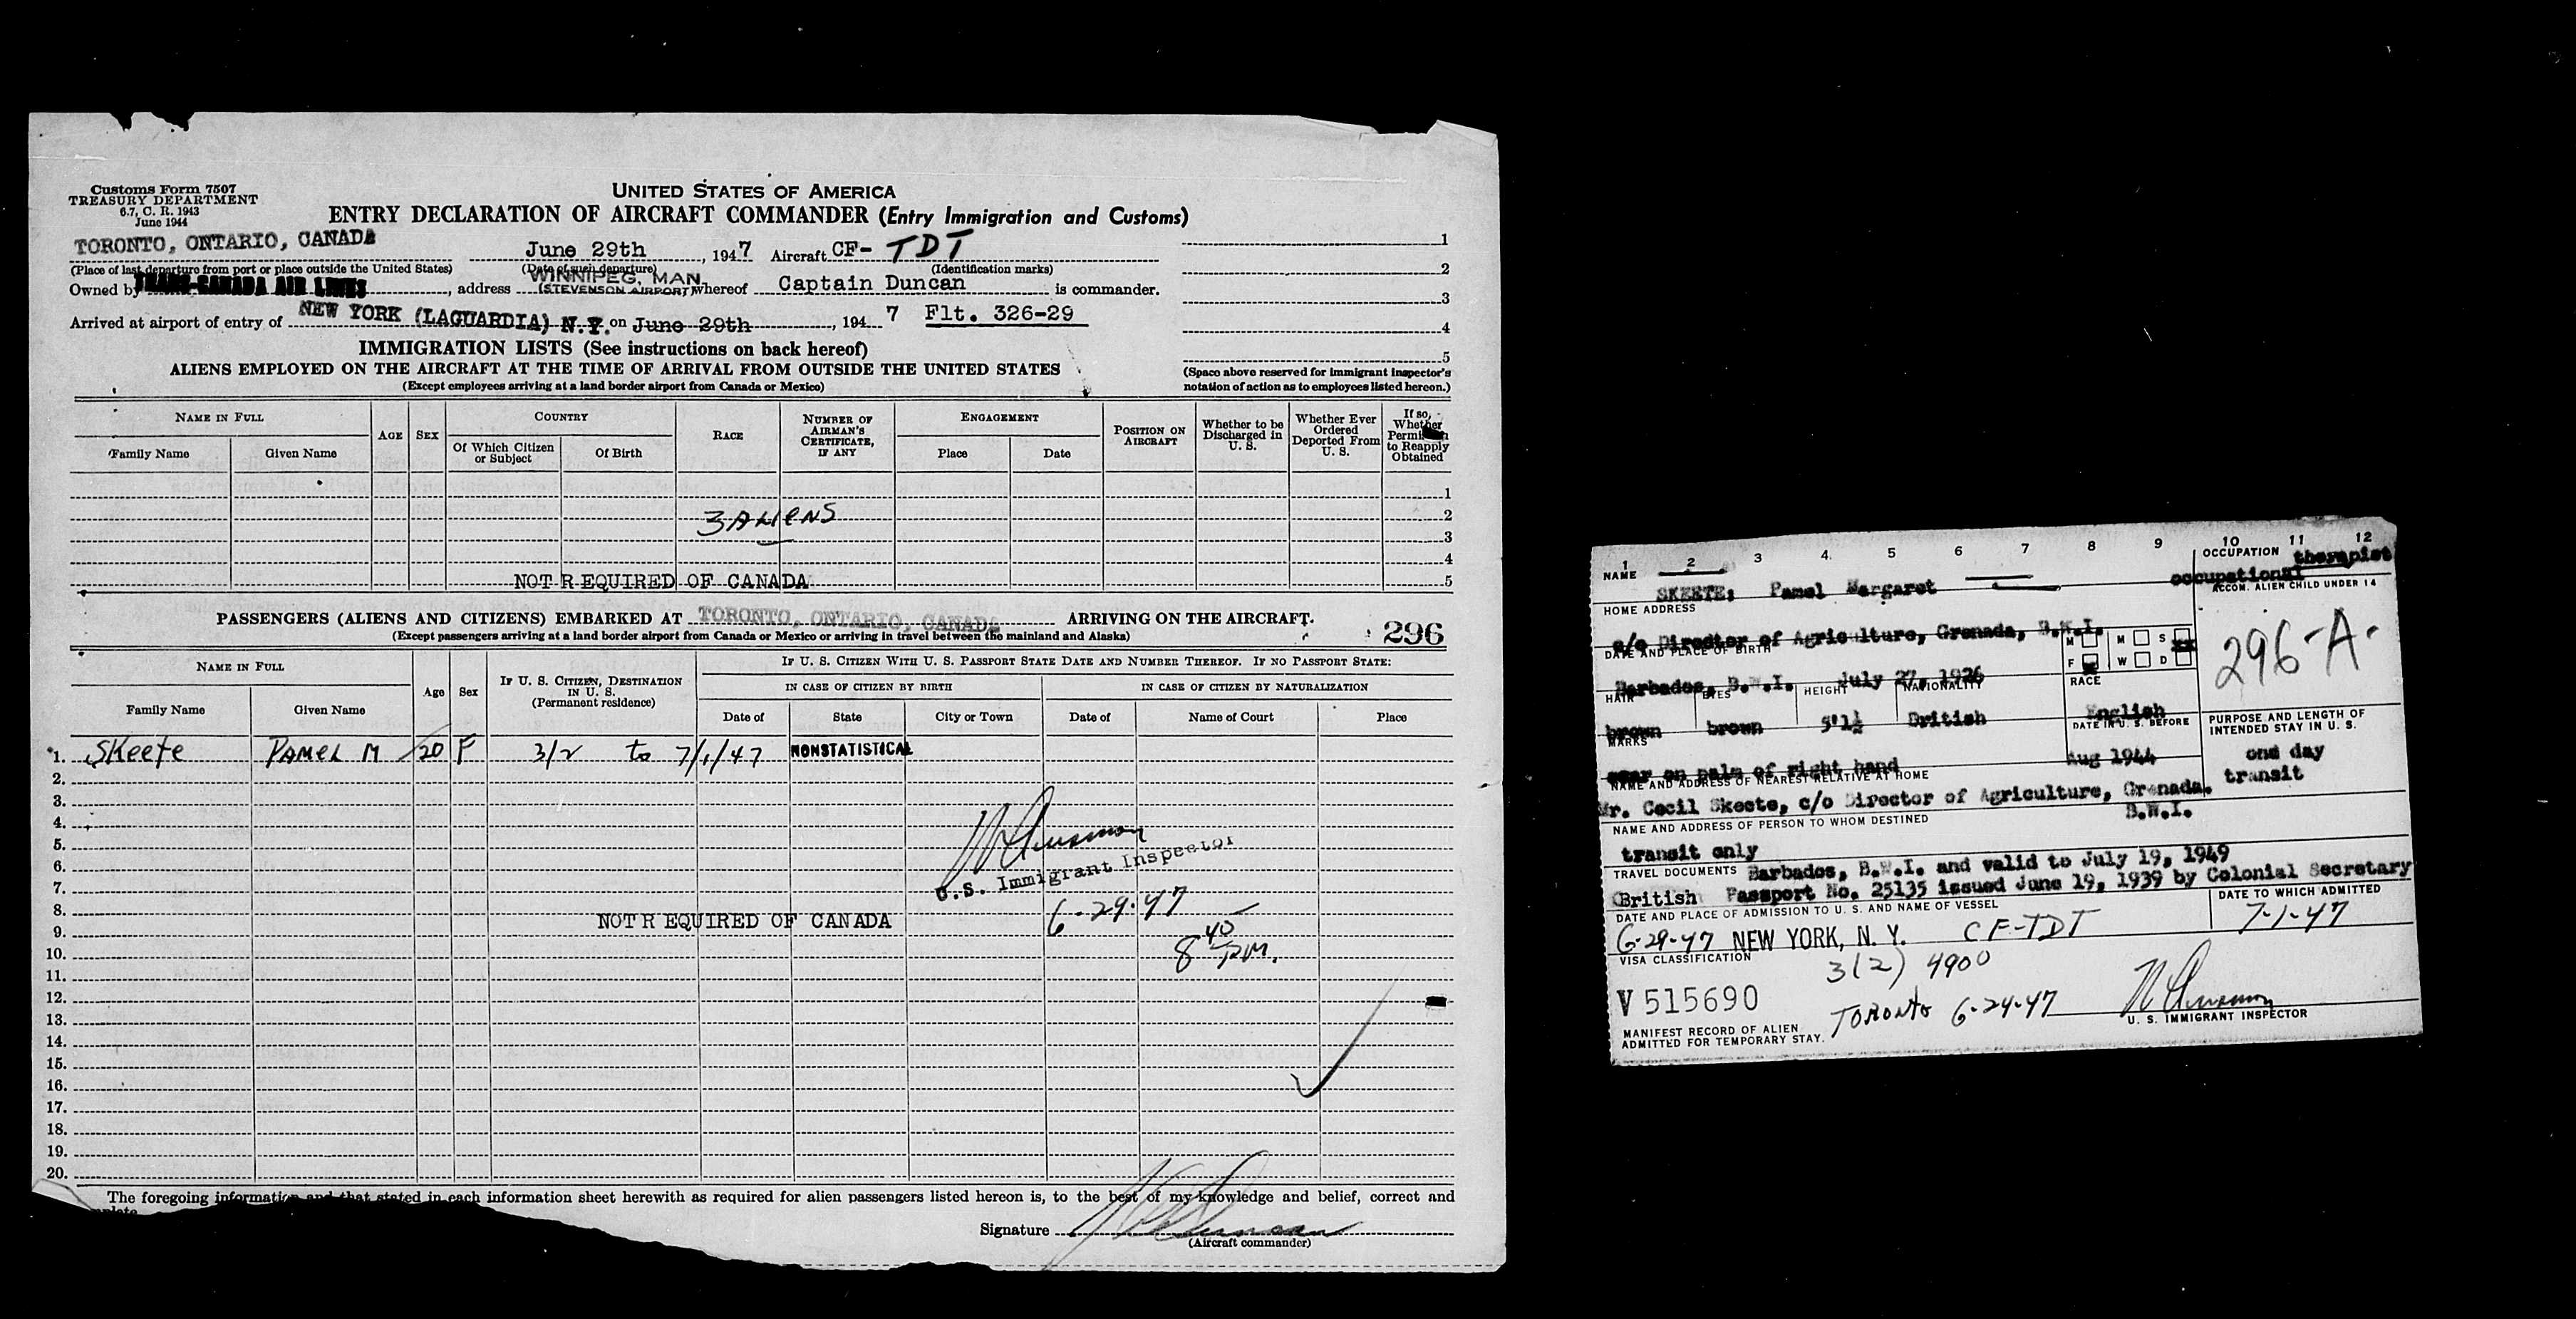 Customs Form 7507
TREASURY DEPARTMENT
6.7, C. R. 1943
June 1944
UNITED STATES OF AMERICA
ENTRY DECLARATION OF AIRCRAFT COMMANDER (Entry Immigration and Customs)
TORONTO, ONTARIO, CANADA June 29th, 1947 Aircraft CF- TDT
(Place of last departure from port or place outside the United States) (Date of such departure) (Identification marks)
Owned by TRANS-CANADA AIR LINES, address WINNIPEG, MAN. (STEVENSON AIRPORT) whereof Captain Duncan is commander.
Arrived at airport of entry of NEW YORK (LAGUARDIA) N.Y. on June 29th, 194 7 Flt. 326-29
1
2
3
4
5
(Space above reserved for immigrant inspector's notation of action as to employees listed hereon.)
IMMIGRATION LISTS (See instructions on back hereof)
ALIENS EMPLOYED ON THE AIRCRAFT AT THE TIME OF ARRIVAL FROM OUTSIDE THE UNITED STATES
(Except employees arriving at a land border airport from Canada or Mexico)
NAME IN FULL
Family Name Given Name
AGE SEX
COUNTRY
Of Which Citizen or Subject Of Birth
RACE
NUMBER OF AIRMAN'S CERTIFICATE, IF ANY
ENGAGEMENT
Place Date
POSITION ON AIRCRAFT
Whether to be Discharged in U. S.
Whether Ever Ordered Deported From U. S.
If so, Whether Permission to Reapply Obtained
1
3 ALIENS 2
3
4
NOT REQUIRED OF CANADA 5
PASSENGERS (ALIENS AND CITIZENS) EMBARKED AT TORONTO, ONTARIO, CANADA ARRIVING ON THE AIRCRAFT.
(Except passengers arriving at a land border airport from Canada or Mexico or arriving in travel between the mainland and Alaska)
296
NAME IN FULL
Family Name Given Name
Age Sex
IF U. S. CITIZEN, DESTINATION IN U. S. (Permanent residence)
IF U. S. CITIZEN WITH U. S. PASSPORT STATE DATE AND NUMBER THEREOF. IF NO PASSPORT STATE:
IN CASE OF CITIZEN BY BIRTH IN CASE OF CITIZEN BY NATURALIZATION
Date of State City or Town Date of Name of Court Place
1. Skeete PAMEL M 20 F 3/2 to 7/1/47 NONSTATISTICAL
2.
3.
4.
5.
6.
U.S. Immigrant Inspector
7.
8. 6-29-47
NOT REQUIRED OF CANADA
9.
8 40 PM.
10.
11.
12.
13.
14.
15.
16.
17.
18.
19.
20.
The foregoing information and that stated in each information sheet herewith as required for alien passengers listed hereon is, to the best of my knowledge and belief, correct and
Signature
(Aircraft commander)
1 2 3 4 5 6 7 8 9 10 11 12
NAME
SKEETE; Pamel Margaret
OCCUPATION
occupational therapist
ACCOM. ALIEN CHILD UNDER 14
HOME ADDRESS
c/o Director of Agriculture, Grenada, B.W.I.
M F M S W D
296-A.
DATE AND PLACE OF BIRTH
Barbados, B.W.I. July 27, 1926
RACE
English
HAIR EYES HEIGHT NATIONALITY
brown brown 5'1½ British
DATE IN U. S. BEFORE
Aug 1944
PURPOSE AND LENGTH OF INTENDED STAY IN U. S.
one day
transit
MARKS
scar on palm of right hand
NAME AND ADDRESS OF NEAREST RELATIVE AT HOME
Mr. Cecil Skeete, c/o Director of Agriculture, Grenada.
B.W.I.
NAME AND ADDRESS OF PERSON TO WHOM DESTINED
transit only
TRAVEL DOCUMENTS Barbados, B.W.I. and valid to July 19, 1949
British Passport No. 25135 issued June 19, 1939 by Colonial Secretary
DATE AND PLACE OF ADMISSION TO U. S. AND NAME OF VESSEL
6-29-47 NEW YORK, N. Y. CF-TDT
DATE TO WHICH ADMITTED
7-1-47
VISA CLASSIFICATION
3(2) 4900
V 515690
TORONTO 6-24-47
U. S. IMMIGRANT INSPECTOR
MANIFEST RECORD OF ALIEN
ADMITTED FOR TEMPORARY STAY.